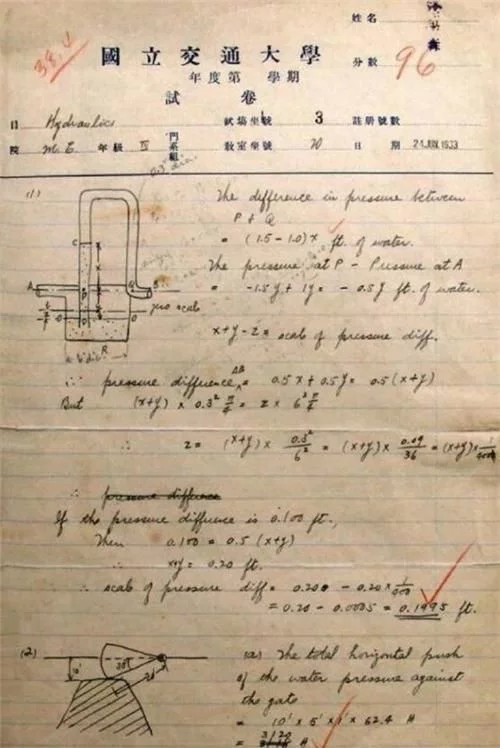 38.4
姓名
國立交通大學
分數 96
年度第 學期
試卷
目 Hydraulics 試場坐號 3 註册號數
院 M.E. 年級 IV 門系組 教室坐號 20 日期 24 JUN 1933
(1)
0.3" dia.
The difference in pressure between
P & Q
= (1.5-1.0)x ft. of water.
The pressure at P - Pressure at A
= -1.5y + 1y = -0.5y ft. of water.
C
A
B
zero scale
6" dia.
R
x+y-z = scale of pressure diff.
∴ pressure difference AB = 0.5x + 0.5y = 0.5(x+y)
But (x+y) x 0.3² π/4 = z x 6² π/4
∴ z = (x+y) x 0.3²/6² = (x+y) x 0.09/36 = (x+y) x 1/400
∴ pressure difference
If the pressure difference is 0.100 ft.,
Then 0.100 = 0.5 (x+y)
x+y = 0.20 ft.
∴ scale of pressure diff = 0.200 - 0.20 x 1/400
= 0.20 - 0.0005 = 0.1995 ft.
(2)
10'
30°
20'
(a) The total horizontal push
of the water pressure against
the gate
= 10' x 5' x 1' x 62.4 #
= 3120 #